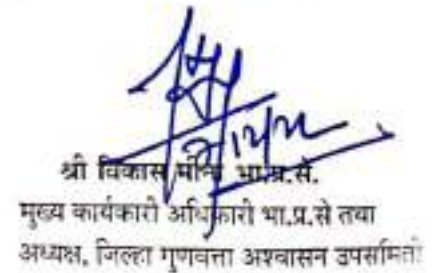 श्री विकास मीना भा.प्र.से.
मुख्य कार्यकारी अधिकारी भा.प्र.से तथा
अध्यक्ष, जिल्हा गुणवत्ता अश्वासन उपसमिती